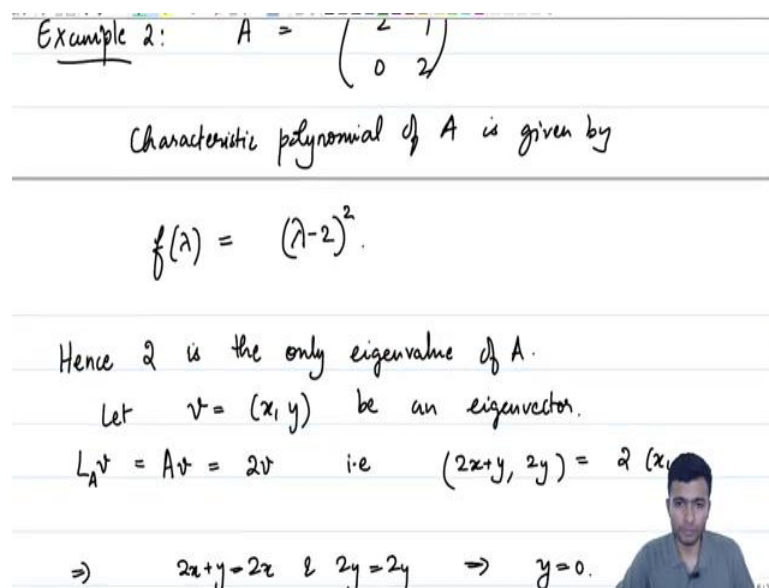 Example 2: A = ( 2 1
0 2 )
Characteristic polynomial of A is given by
f(λ) = (λ-2)².
Hence 2 is the only eigenvalue of A.
Let v = (x, y) be an eigenvector.
L_A v = Av = 2v i.e (2x+y, 2y) = 2 (x,
⇒ 2x+y=2x & 2y=2y ⇒ y=0.